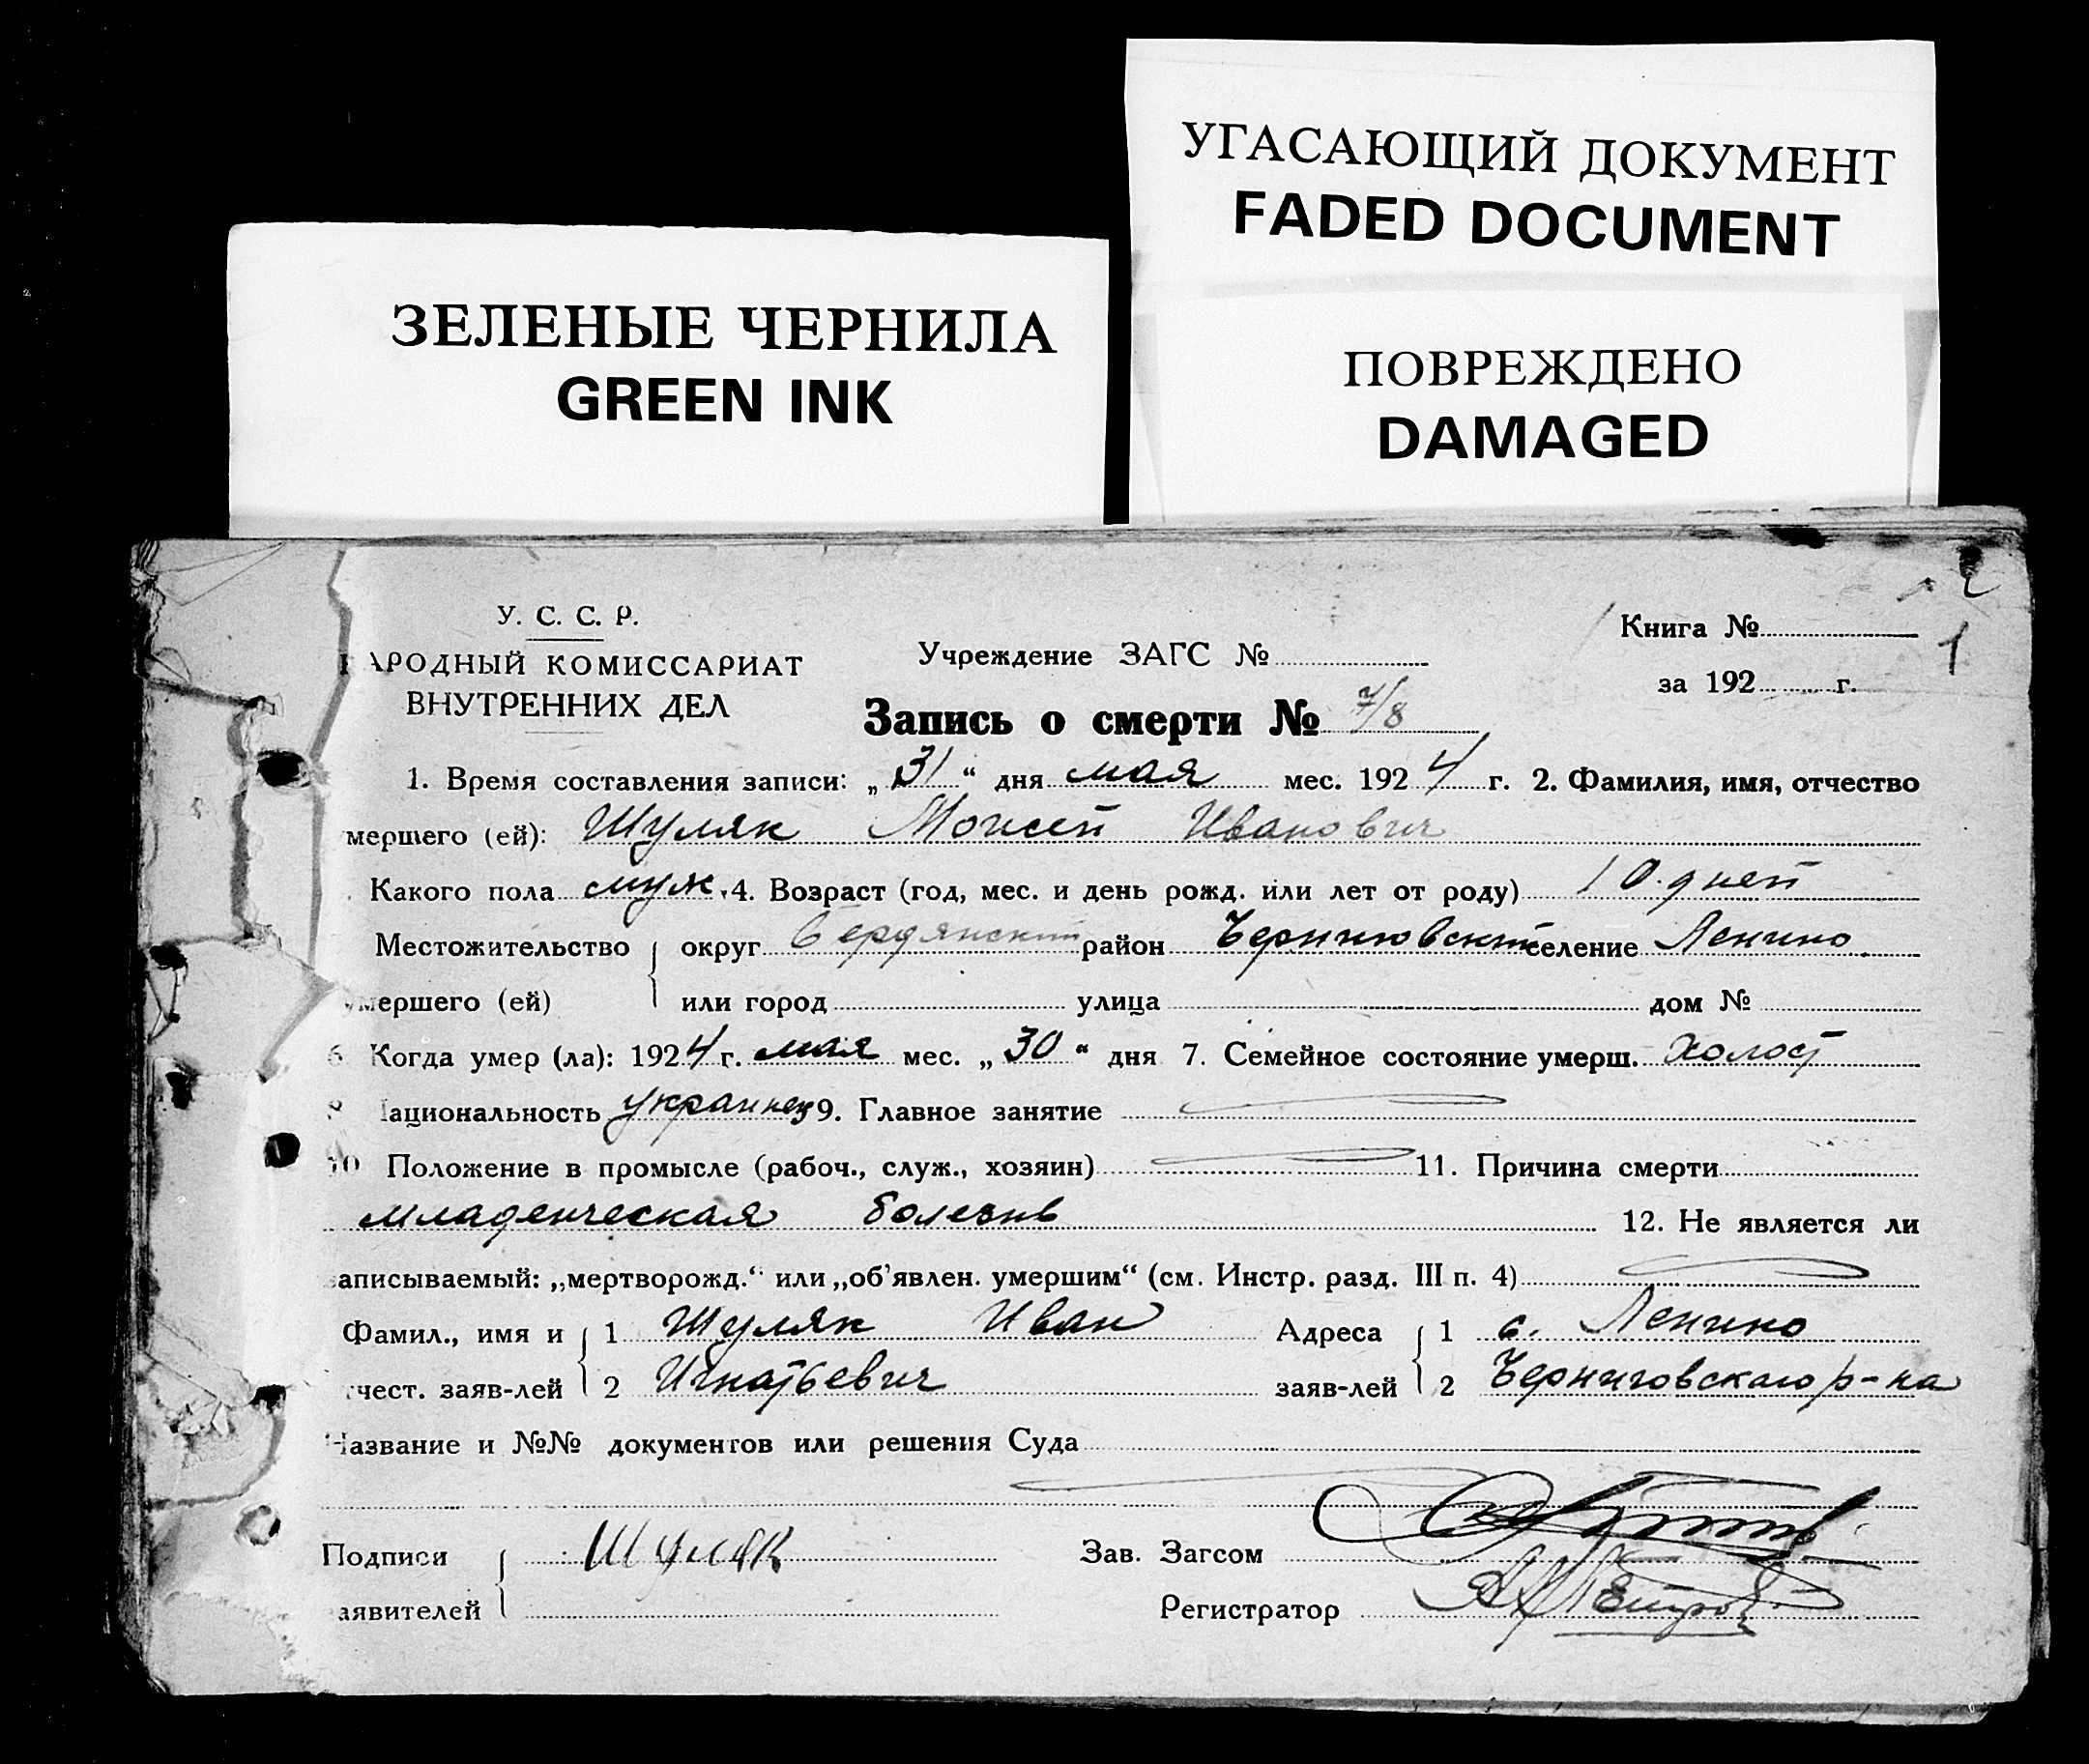 УГАСАЮЩИЙ ДОКУМЕНТ
FADED DOCUMENT
ЗЕЛЕНЫЕ ЧЕРНИЛА
GREEN INK
ПОВРЕЖДЕНО
DAMAGED
У. С. С. Р.
АРОДНЫЙ КОМИССАРИАТ
ВНУТРЕННИХ ДЕЛ
Учреждение ЗАГС №
Книга №
1
за 192 г.
Запись о смерти № 7/8
1. Время составления записи: „31“ дня мая мес. 1924 г. 2. Фамилия, имя, отчество
мершего (ей): Шуляк Моисей Иванович
Какого пола муж. 4. Возраст (год, мес. и день рожд. или лет от роду) 10 дней
Местожительство округ Бердянский район Черниговский селение Ленино
умершего (ей) или город улица дом №
6 Когда умер (ла): 1924 г. мая мес. „30“ дня 7. Семейное состояние умерш. холост
8 ациональность украинец 9. Главное занятие
10 Положение в промысле (рабоч., служ., хозяин) 11. Причина смерти
младенческая болезнь 12. Не является ли
аписываемый: „мертворожд.“ или „об'явлен. умершим“ (см. Инстр. разд. III п. 4)
Фамил., имя и 1 Шуляк Иван Адреса 1 с. Ленино
чест. заяв-лей 2 Игнатьевич заяв-лей 2 Черниговского р-на
Название и №№ документов или решения Суда
Подписи Шуляк Зав. Загсом
аявителей Регистратор